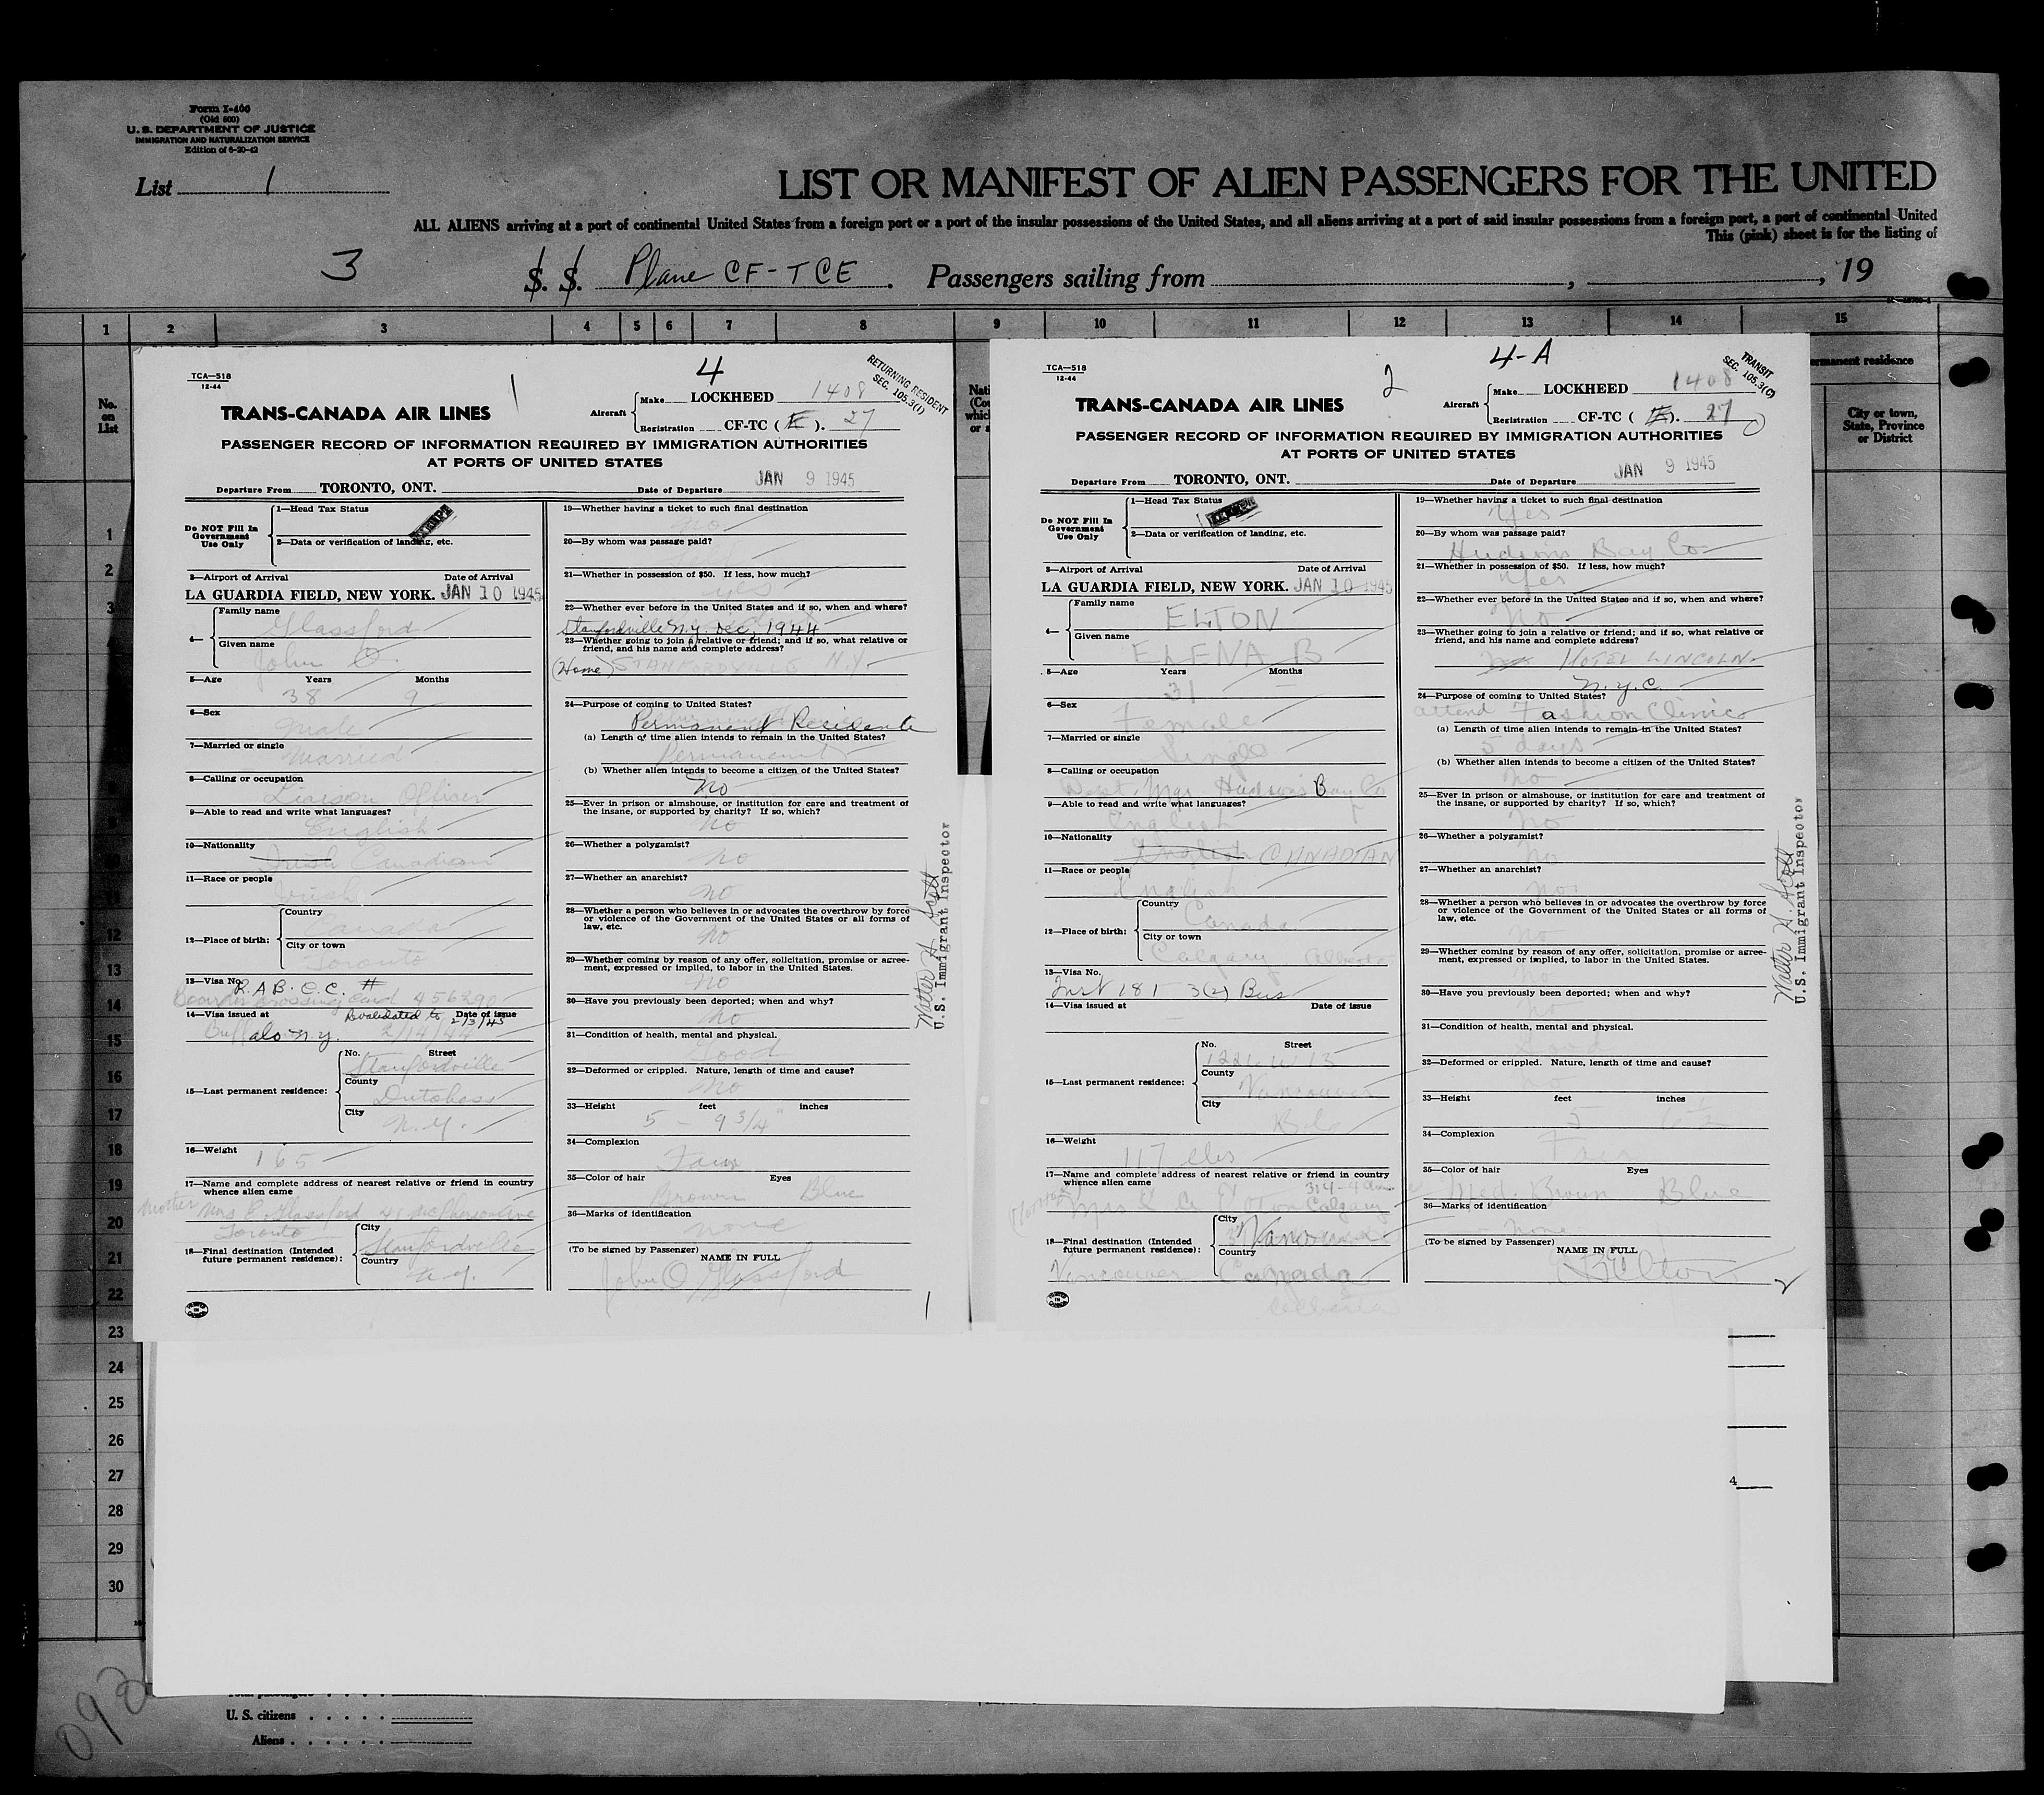 Form I-400
(Old 500)
U. S. DEPARTMENT OF JUSTICE
IMMIGRATION AND NATURALIZATION SERVICE
Edition of 6-20-42
List 1
LIST OR MANIFEST OF ALIEN PASSENGERS FOR THE UNITED
ALL ALIENS arriving at a port of continental United States from a foreign port or a port of the insular possessions of the United States, and all aliens arriving at a port of said insular possessions from a foreign port, a port of continental United
This (pink) sheet is for the listing of
3
S. S. Plane CF-TCE . Passengers sailing from , , 19
1 2 3 4 5 6 7 8 9 10 11 12 13 14 15
No. on List
permanent residence
City or town, State, Province or District
TCA—518
12-44
1
4
RETURNING RESIDENT
SEC. 105.3(1)
TRANS-CANADA AIR LINES
Aircraft
Make LOCKHEED 1408
Registration CF-TC ( E ). 27
PASSENGER RECORD OF INFORMATION REQUIRED BY IMMIGRATION AUTHORITIES
AT PORTS OF UNITED STATES
Departure From TORONTO, ONT. Date of Departure JAN 9 1945
Do NOT Fill In Government Use Only
1—Head Tax Status EXEMPT
2—Data or verification of landing, etc.
3—Airport of Arrival Date of Arrival
LA GUARDIA FIELD, NEW YORK. JAN 10 1945
4—
Family name Glassford
Given name John O.
5—Age Years Months
38 9
6—Sex
Male
7—Married or single
Married
8—Calling or occupation
Liaison Officer
9—Able to read and write what languages?
English
10—Nationality
Irish Canadian
11—Race or people
Irish
12—Place of birth:
Country
Canada
City or town
Toronto
13—Visa No. R.A.B.C.C. #
Boarder crossing card 456290
14—Visa issued at Revalidated to 2/3/45 Date of issue
Buffalo N.Y.
15—Last permanent residence:
No. Street
Stanfordville
County
Dutchess
City
N.Y.
16—Weight
165
17—Name and complete address of nearest relative or friend in country whence alien came
Mother Mrs E. Glassford McPherson Ave
Toronto
18—Final destination (Intended future permanent residence):
City
Stanfordville
Country
N.Y.
19—Whether having a ticket to such final destination
No
20—By whom was passage paid?
21—Whether in possession of $50. If less, how much?
Yes
22—Whether ever before in the United States and if so, when and where?
Stanfordville N.Y. Dec. 1944
23—Whether going to join a relative or friend; and if so, what relative or friend, and his name and complete address?
(Home) STANFORDVILLE N.Y.
24—Purpose of coming to United States?
Permanent Residence
(a) Length of time alien intends to remain in the United States?
Permanent
(b) Whether alien intends to become a citizen of the United States?
No
25—Ever in prison or almshouse, or institution for care and treatment of the insane, or supported by charity? If so, which?
No
26—Whether a polygamist?
No
27—Whether an anarchist?
No
28—Whether a person who believes in or advocates the overthrow by force or violence of the Government of the United States or all forms of law, etc.
No
29—Whether coming by reason of any offer, solicitation, promise or agreement, expressed or implied, to labor in the United States.
No
30—Have you previously been deported; when and why?
No
31—Condition of health, mental and physical.
Good
32—Deformed or crippled. Nature, length of time and cause?
No
33—Height feet inches
5 - 9 3/4"
34—Complexion
Fair
35—Color of hair Eyes
Brown Blue
36—Marks of identification
None
(To be signed by Passenger) NAME IN FULL
John O Glassford
1
Walter H. Scott
U.S. Immigrant Inspector
TCA—518
12-44
2
4-A
TRANSIT
SEC. 105.3(C)
TRANS-CANADA AIR LINES
Aircraft
Make LOCKHEED 1408
Registration CF-TC ( E ). 27
PASSENGER RECORD OF INFORMATION REQUIRED BY IMMIGRATION AUTHORITIES
AT PORTS OF UNITED STATES
Departure From TORONTO, ONT. Date of Departure JAN 9 1945
Do NOT Fill In Government Use Only
1—Head Tax Status EXEMPT
2—Data or verification of landing, etc.
3—Airport of Arrival Date of Arrival
LA GUARDIA FIELD, NEW YORK. JAN 10 1945
4—
Family name ELTON
Given name ELENA B
5—Age Years Months
31 —
6—Sex
Female
7—Married or single
Single
8—Calling or occupation
Dept. Mgr Hudson's Bay Co
9—Able to read and write what languages?
English
10—Nationality
English CANADIAN
11—Race or people
English
12—Place of birth:
Country
Canada
City or town
Calgary Alberta
13—Visa No.
Inst 181 3(2) Bus
14—Visa issued at Date of issue
15—Last permanent residence:
No. Street
1221 W 13
County
Vancouver
City
16—Weight
117 lbs
17—Name and complete address of nearest relative or friend in country whence alien came
Mrs Elton 314-4 Ave Calgary
18—Final destination (Intended future permanent residence):
City
Vancouver
Country
Vancouver Canada
19—Whether having a ticket to such final destination
Yes
20—By whom was passage paid?
Hudsons Bay Co
21—Whether in possession of $50. If less, how much?
Yes
22—Whether ever before in the United States and if so, when and where?
No
23—Whether going to join a relative or friend; and if so, what relative or friend, and his name and complete address?
No HOTEL LINCOLN
N.Y.C.
24—Purpose of coming to United States?
attend Fashion Clinic
(a) Length of time alien intends to remain in the United States?
5 days
(b) Whether alien intends to become a citizen of the United States?
No
25—Ever in prison or almshouse, or institution for care and treatment of the insane, or supported by charity? If so, which?
No
26—Whether a polygamist?
No
27—Whether an anarchist?
No
28—Whether a person who believes in or advocates the overthrow by force or violence of the Government of the United States or all forms of law, etc.
No
29—Whether coming by reason of any offer, solicitation, promise or agreement, expressed or implied, to labor in the United States.
No
30—Have you previously been deported; when and why?
No
31—Condition of health, mental and physical.
Good
32—Deformed or crippled. Nature, length of time and cause?
33—Height feet inches
5 6 1/2
34—Complexion
Fair
35—Color of hair Eyes
Med. Brown Blue
36—Marks of identification
None
(To be signed by Passenger) NAME IN FULL
Elton
2
Walter H. Scott
U.S. Immigrant Inspector
1
2
3
12
13
14
15
16
17
18
19
20
21
22
23
24
25
26
27
28
29
30
4
U. S. citizens
Aliens